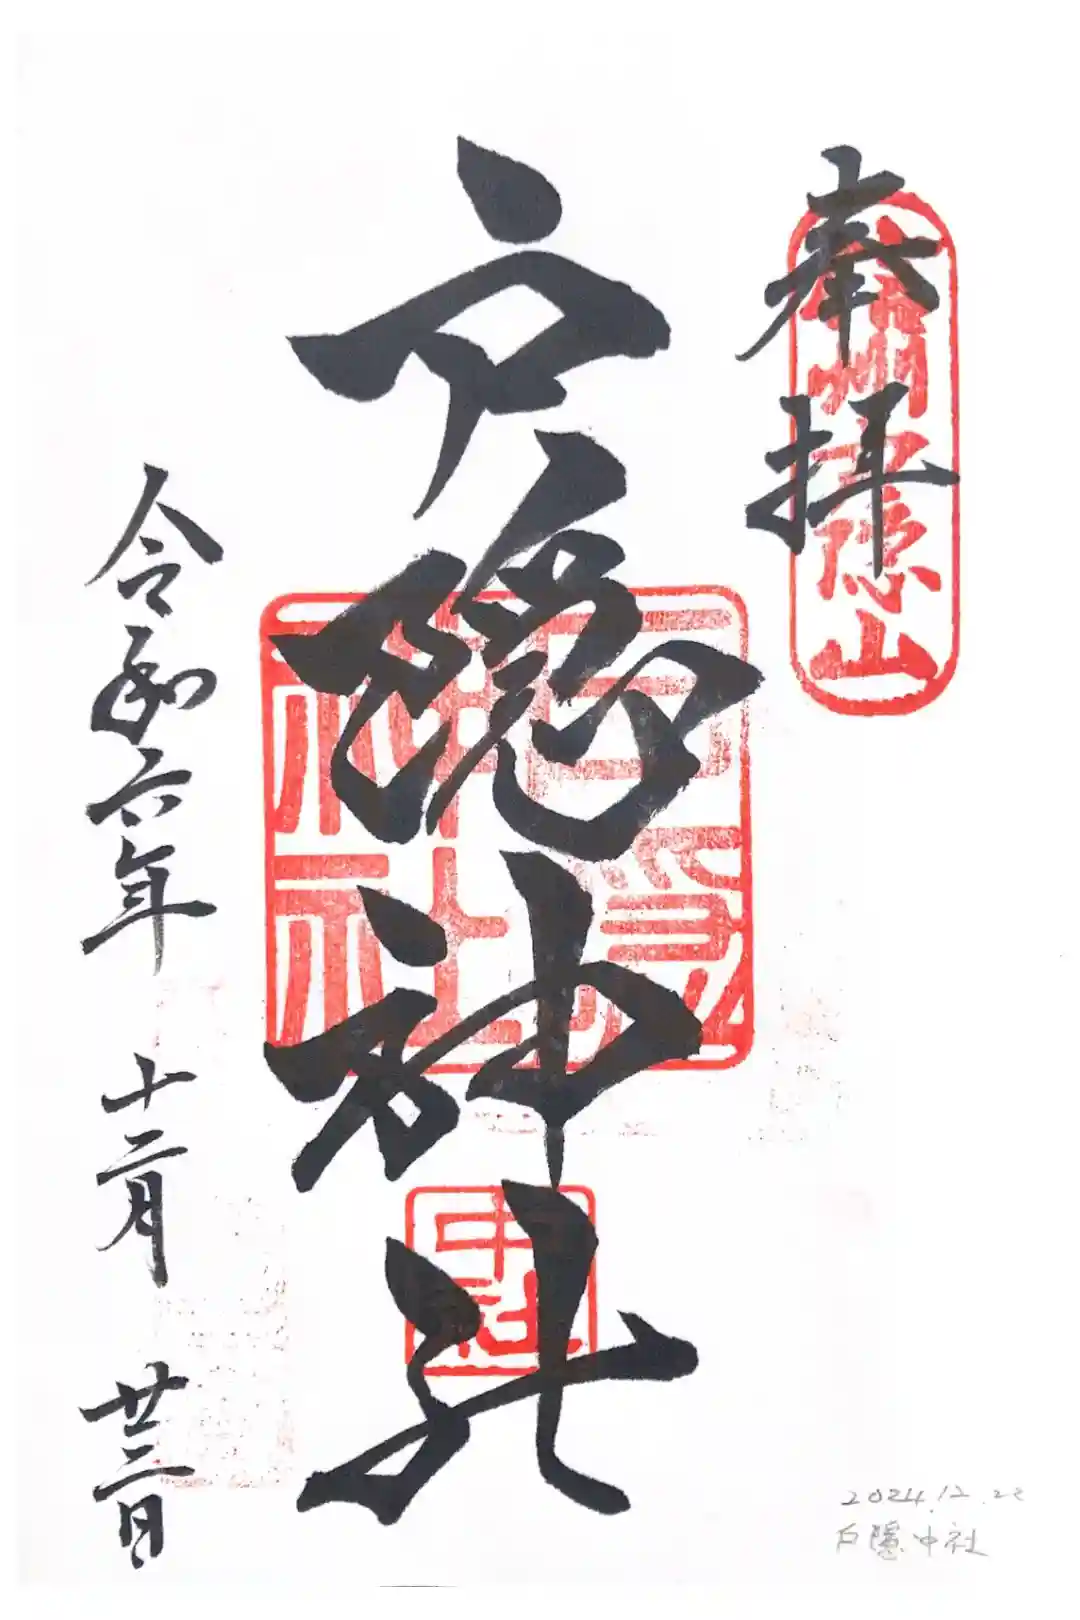 奉拝
信州戸隠山
戸隠神社
戸隠神社
中社
令和六年 十二月 廿二日
2024.12.22
戸隠中社